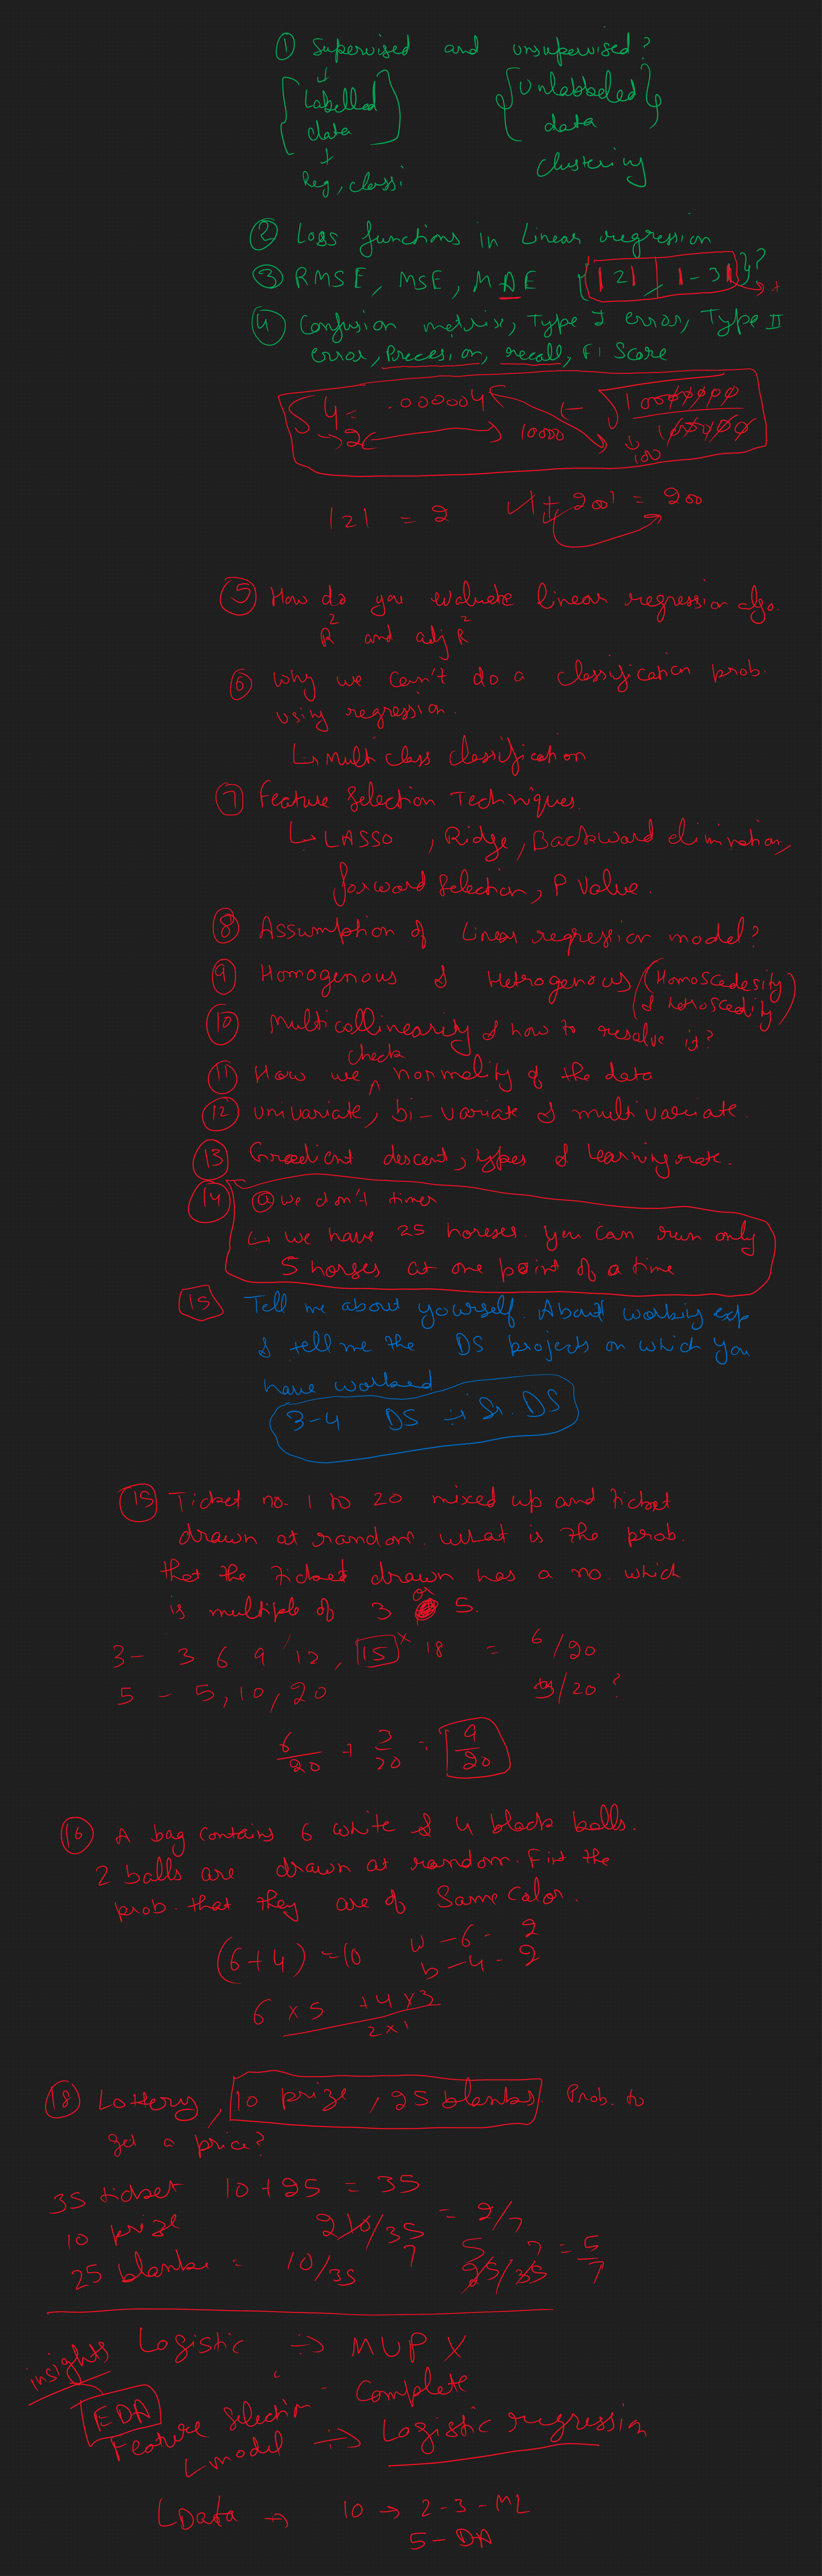 ① Supervised and unsupervised?
Labelled Unlabbeled
data data
Reg, classi clustering
② Loss functions in Linear regression
③ RMSE, MSE, MAE {|2| |-3|}?
④ Confusion metrix, Type I error, Type II
error, Precesion, recall, F1 Score
4 = .000004 ← √1000000
→2 10000 100000
100
|2| = 2 |+200| = 200
⑤ How do you evaluate linear regression algo.
R² and adj R²
⑥ Why we can't do a classification prob.
using regression.
↳ Multi class classification
⑦ Feature Selection Techniques.
↳ LASSO, Ridge, Backward elimination,
forward selection, P Value.
⑧ Assumption of Linear regression model?
⑨ Homogenous & Hetrogenous (Homoscedesity
& hetroscedity)
⑩ Multicollinearity & how to resolve it?
⑪ How we check normality of the data
⑫ univariate, bi-variate & multivariate.
⑬ Gradient descent, types & learning rate.
⑭ @ we don't timer
↳ we have 25 horeses. you can run only
5 horses at one point of a time
15 Tell me about yourself. About working exp
& tell me the DS projects on which you
have worked
3-4 DS ÷ Sr. DS
⑮ Ticket no. 1 to 20 mixed up and ticket
drawn at random. what is the prob.
that the ticket drawn has a no. which
is multiple of 3 or 5.
3 - 3 6 9 12, 15 x 18 = 6/20
5 - 5, 10, 20 3/20 ?
6/20 + 3/20 = 9/20
⑯ A bag contains 6 white & 4 black balls.
2 balls are drawn at random. Fint the
prob. that they are of Same color.
(6+4) = 10 w - 6 - 2
b - 4 - 2
6 x 5 + 4 x 3
2 x 1
⑱ Lottery, 10 prize, 25 blanks. Prob. to
get a price?
35 ticket 10 + 25 = 35
10 prize 2 10/35 7 = 2/7
25 blanks = 10/35 5 25/35 7 = 5/7
insights Logistic ÷> MUP X
EDA Complete
Feature Selection
↳ model ÷> Logistic regression
↳ Data → 10 → 2-3-ML
5 - DA